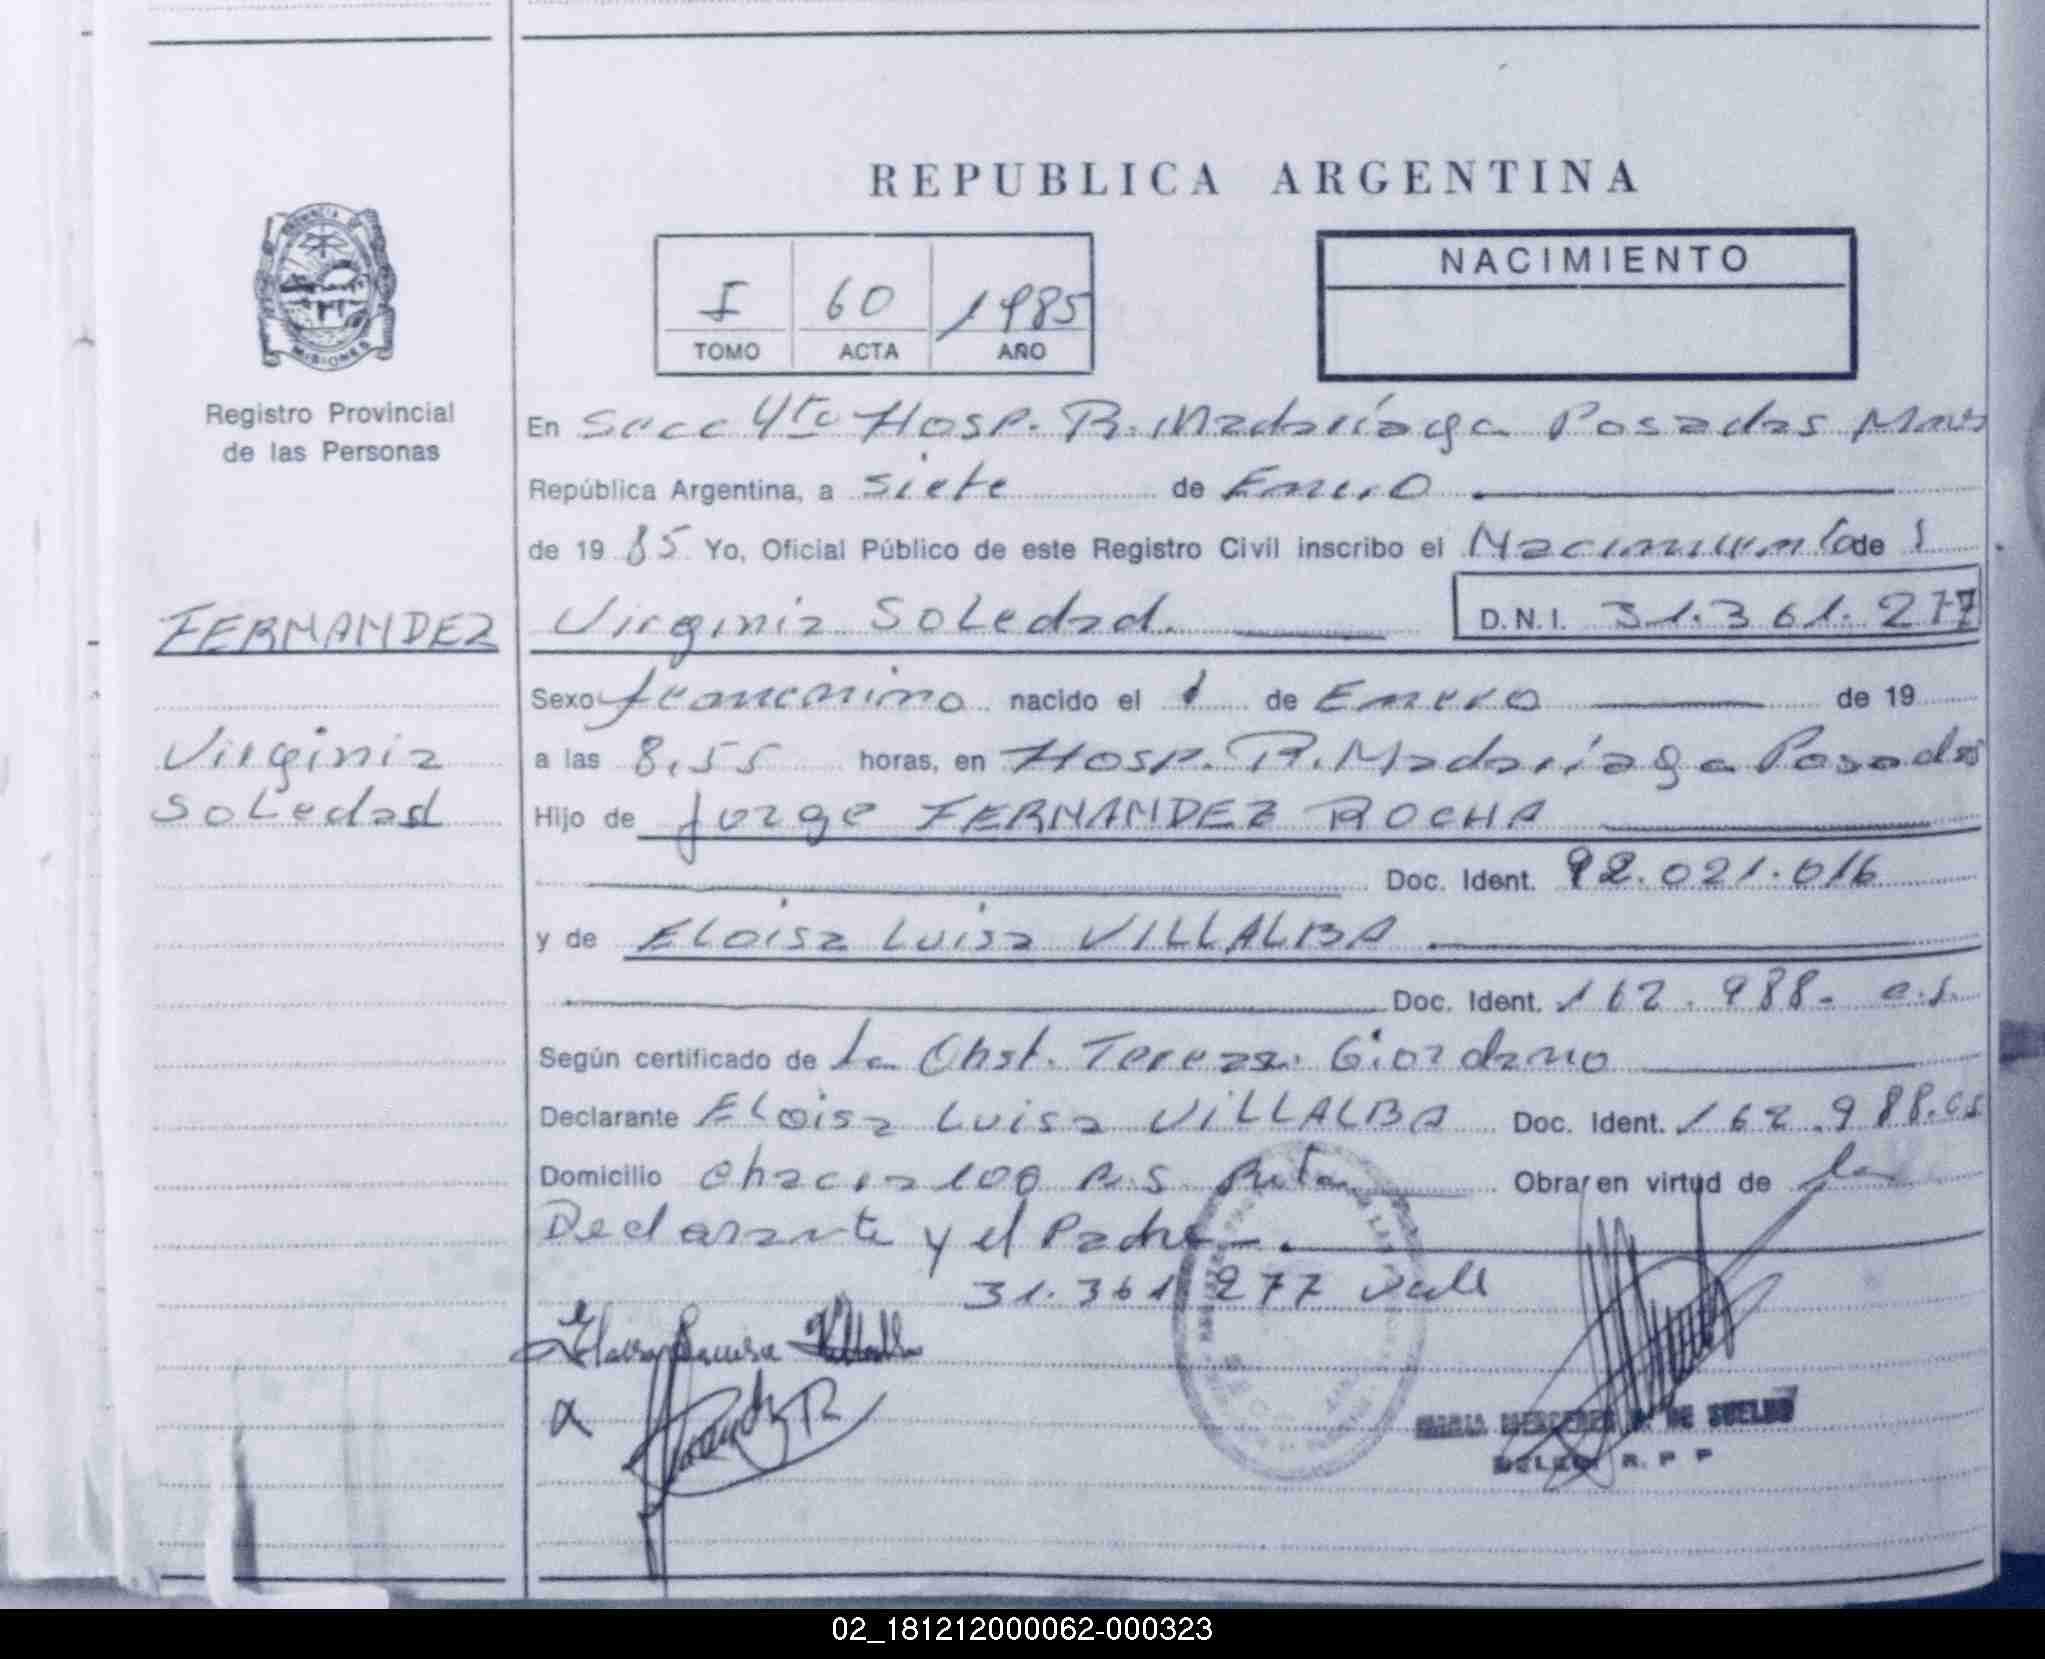 REPUBLICA ARGENTINA
PROVINCIA DE MISIONES
Registro Provincial
de las Personas
I 60 1985
TOMO ACTA AÑO
NACIMIENTO
En Secc 4ta Hosp. R. Madariaga Posadas Mnes
República Argentina, a siete de Enero
de 1985 Yo, Oficial Público de este Registro Civil inscribo el Nacimiento de
FERNANDEZ
Virginia Soledad. D.N.I. 31.361.277
Sexo femenino nacido el 1 de Enero de 19
Virginia
a las 8,55 horas, en Hosp. R. Madariaga Posadas
Soledad
Hijo de Jorge FERNANDEZ ROCHA
Doc. Ident. 92.021.016
y de Eloisa Luisa VILLALBA
Doc. Ident. 162.988. c.i.
Según certificado de La Obst. Teresa Giordano
Declarante Eloisa Luisa VILLALBA Doc. Ident. 162.988.c.i
Domicilio chacra 100 Obrar en virtud de la
Declarante y el Padre -.
31.361.277 vale
Eloisa Luisa Villalba
MARIA MERCEDES DE SUELDO
DELEG. R. P P
02_181212000062-000323